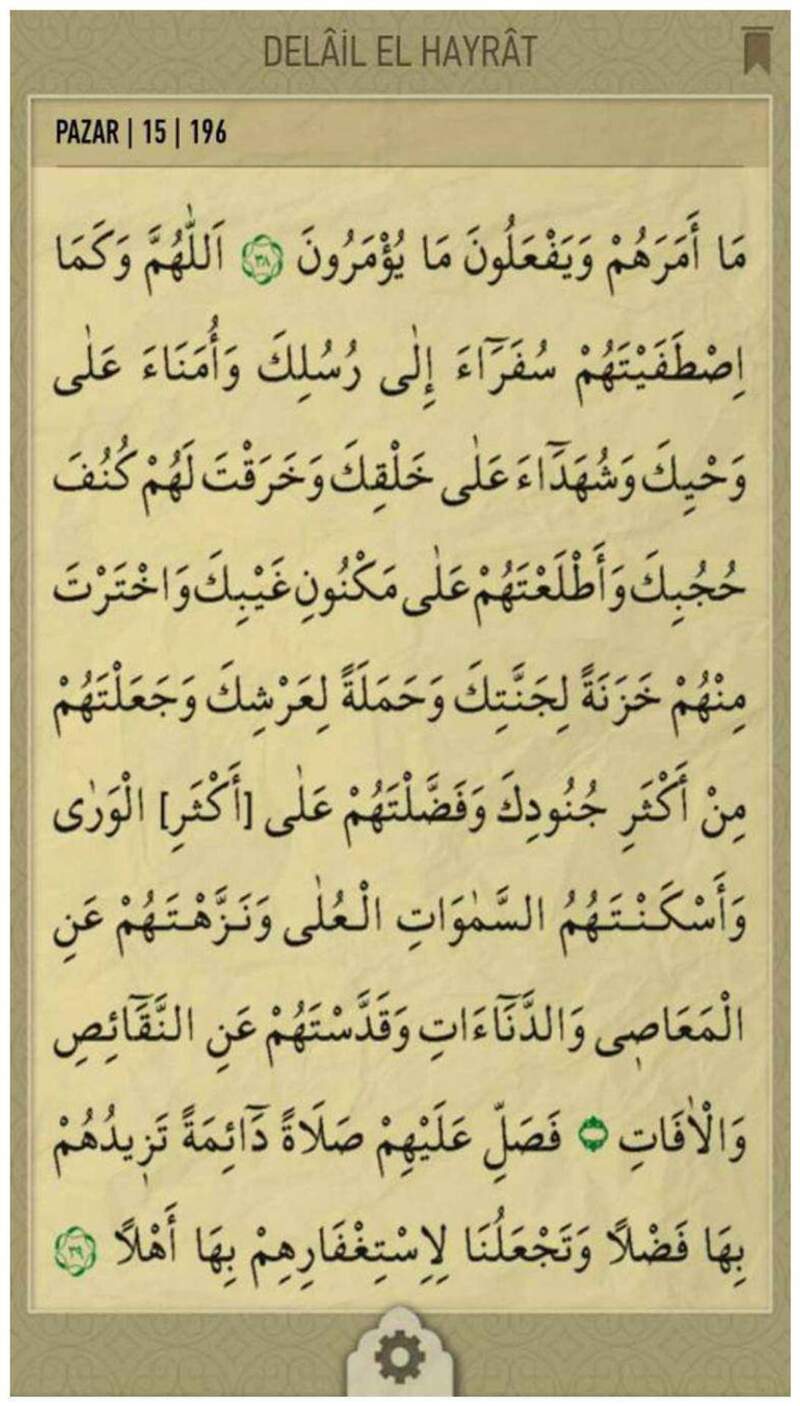 DELÂİL EL HAYRÂT
PAZAR | 15 | 196
مَا أَمَرَهُمْ وَيَفْعَلُونَ مَا يُؤْمَرُونَ ٣٨ اَللّٰهُمَّ وَكَمَا
اِصْطَفَيْتَهُمْ سُفَرَٓاءَ إِلٰى رُسُلِكَ وَأُمَنَاءَ عَلٰى
وَحْيِكَ وَشُهَدَٓاءَ عَلٰى خَلْقِكَ وَخَرَقْتَ لَهُمْ كُنُفَ
حُجُبِكَ وَأَطْلَعْتَهُمْ عَلٰى مَكْنُونِ غَيْبِكَ وَاخْتَرْتَ
مِنْهُمْ خَزَنَةً لِجَنَّتِكَ وَحَمَلَةً لِعَرْشِكَ وَجَعَلْتَهُمْ
مِنْ أَكْثَرِ جُنُودِكَ وَفَضَّلْتَهُمْ عَلٰى [أَكْثَرِ] الْوَرٰى
وَأَسْكَنْتَهُمُ السَّمٰوَاتِ الْعُلٰى وَنَزَّهْتَهُمْ عَنِ
الْمَعَاصِى وَالدَّنَٓاءَاتِ وَقَدَّسْتَهُمْ عَنِ النَّقَٓائِصِ
وَالْاٰفَاتِ فَصَلِّ عَلَيْهِمْ صَلَاةً دَٓائِمَةً تَزِيدُهُمْ
بِهَا فَضْلًا وَتَجْعَلُنَا لِاِسْتِغْفَارِهِمْ بِهَا أَهْلًا ٣٩